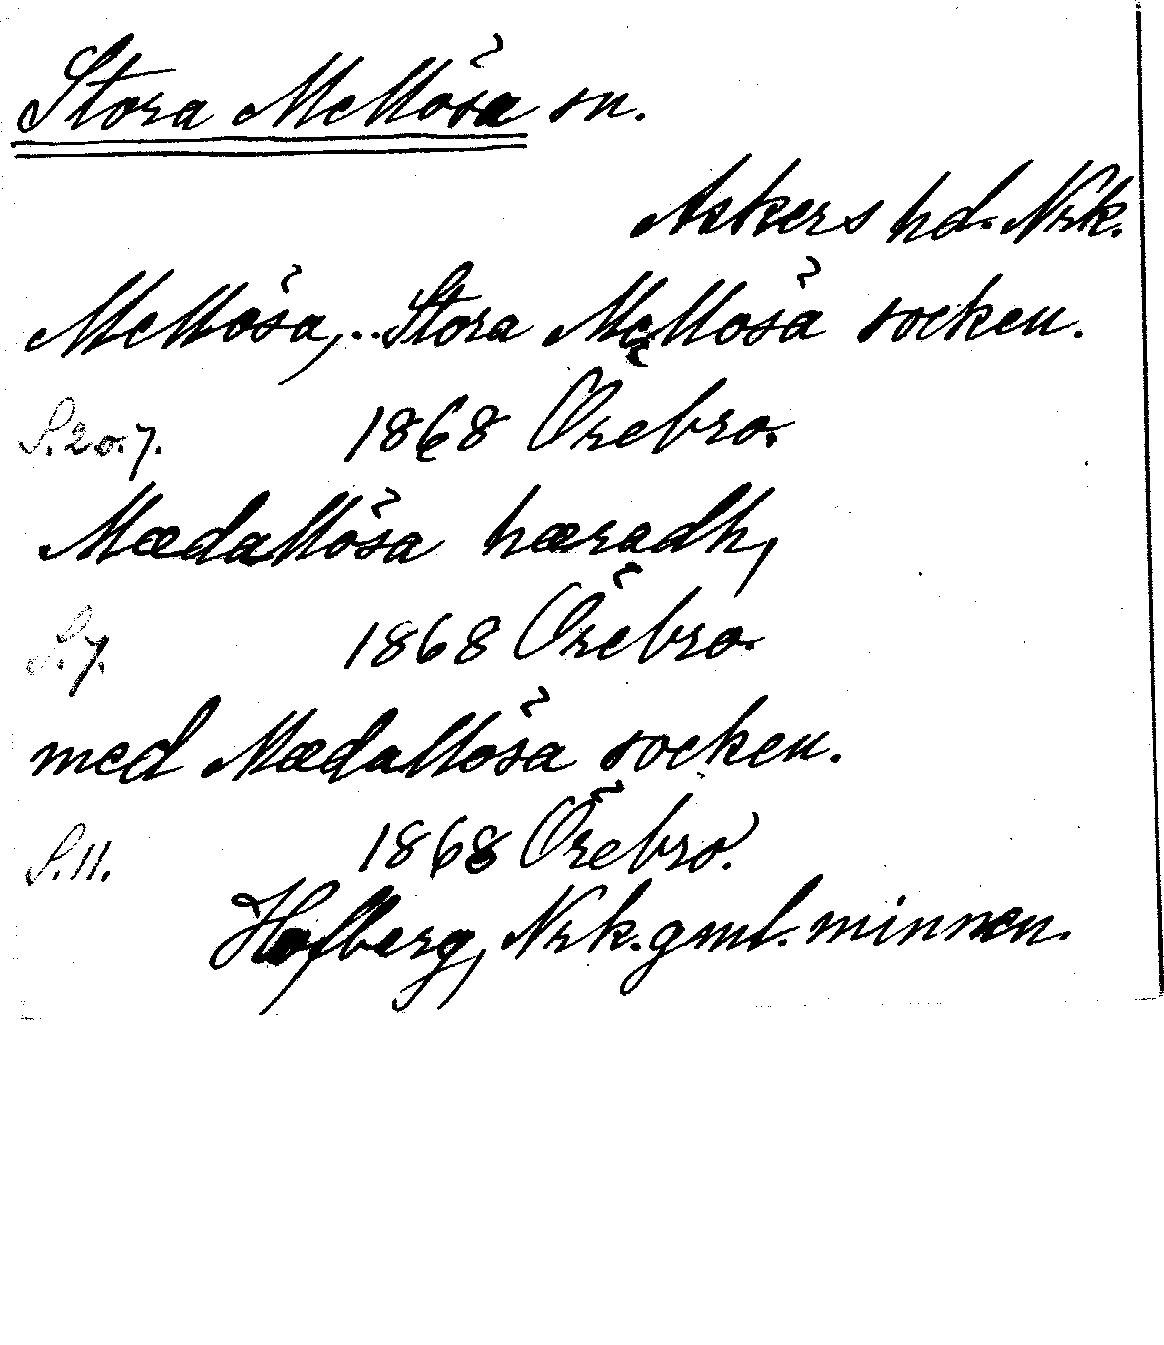 Stora Mellösa sn.
Askers hd. Nrk.
Mellösa,..Stora Mellösa socken.
S. 20.7. 1868 Örebro.
Mædallösa hæradh,
S.7. 1868 Örebro.
med Mædallösa socken.
S.11. 1868 Örebro.
Hofberg, Nrk. gml. minnen.